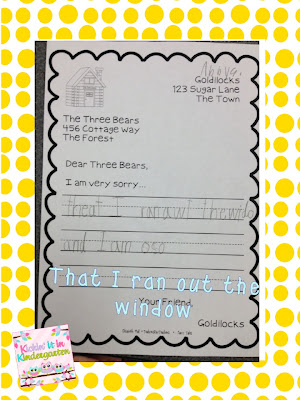 Goldilocks
123 Sugar Lane
The Town
The Three Bears
456 Cottage Way
The Forest
Dear Three Bears,
I am very sorry...
theat I ran
and I ran
That I ran out the
window
Your Friend,
Goldilocks
Kickin' It in
Kindergarten